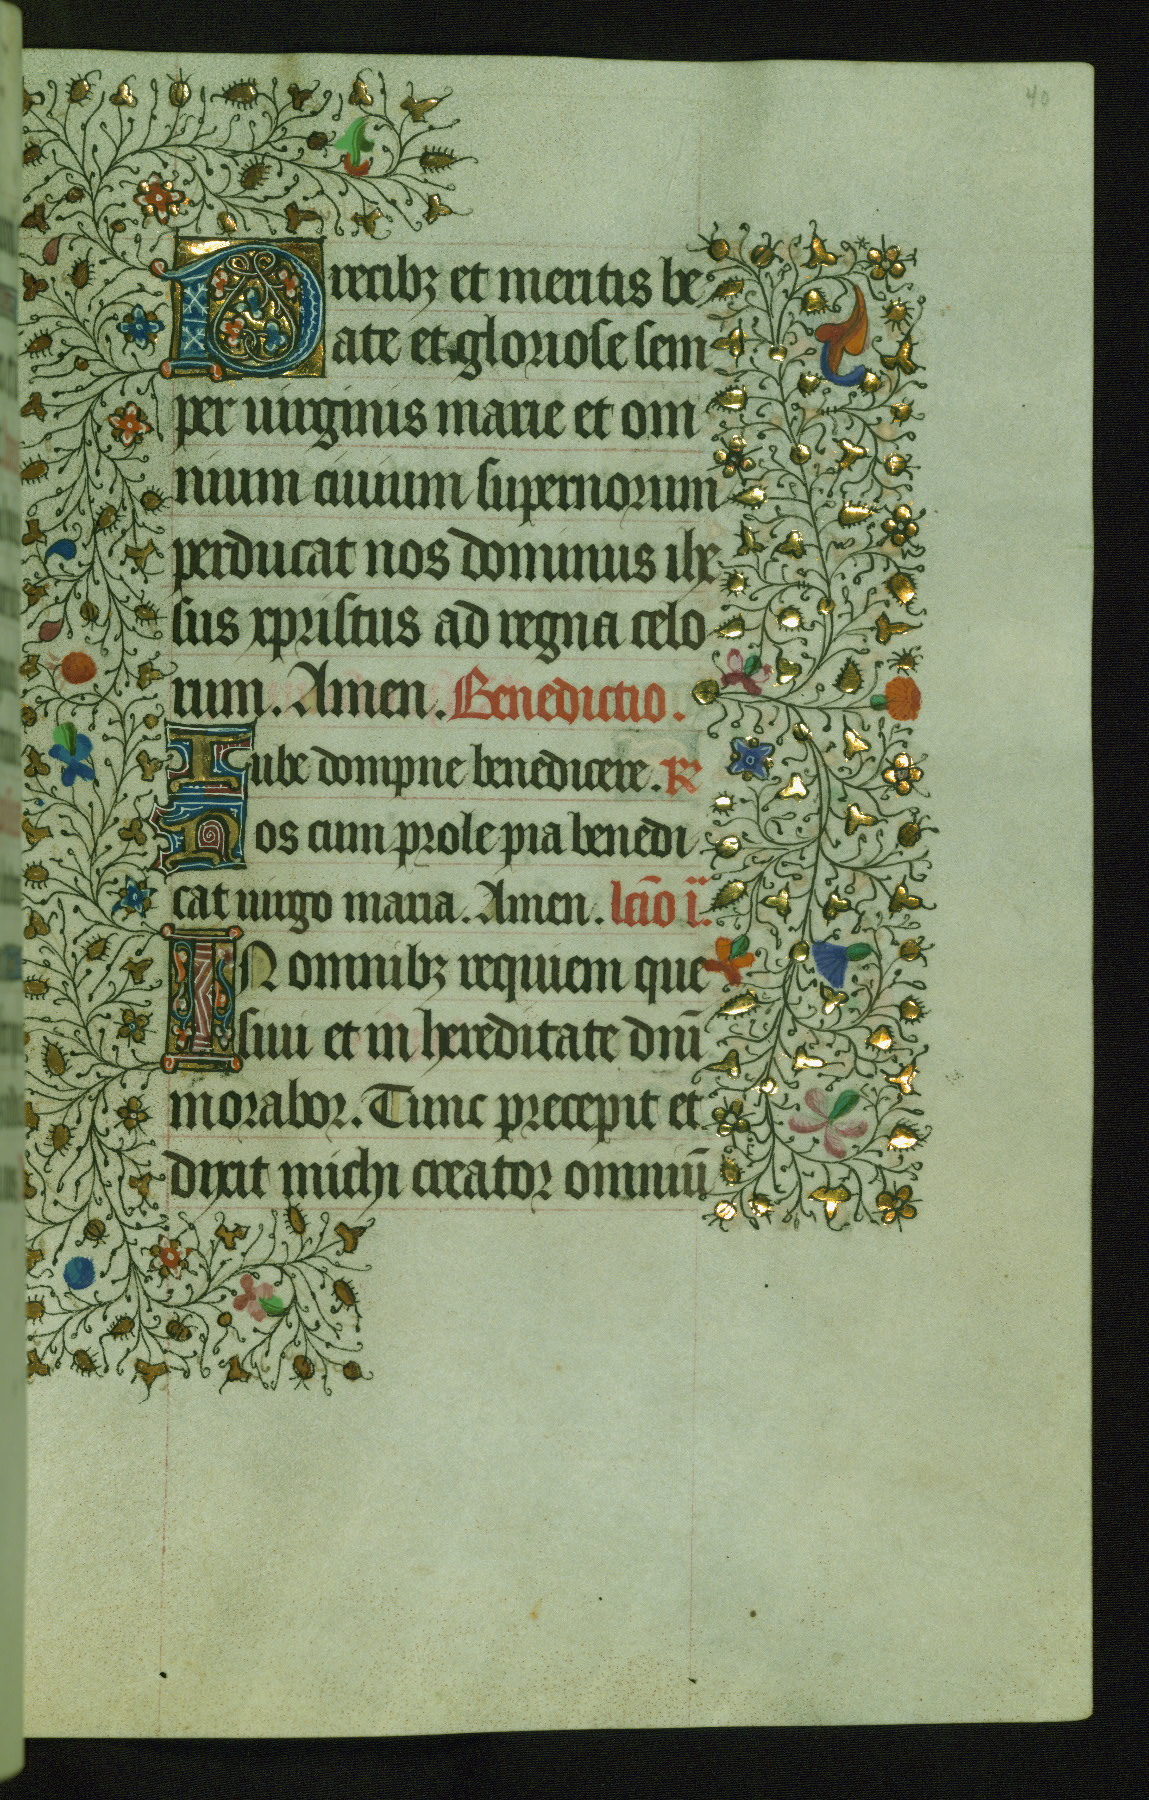 40
Precibꝫ et meritis be
ate et gloriose sem
per uirginis marie et om
nium ciuium supernorum
perducat nos dominus ihe
sus xpristus ad regna celo
rum. Amen. Benedictio.
Iube dompne benedicere. ℟
Nos cum prole pia benedi
cat uirgo maria. Amen. lcīo ï.
IN omnibꝫ requiem que
siui et in hereditate dnī
morabor. Tunc precepit et
dixit michi creator omniū